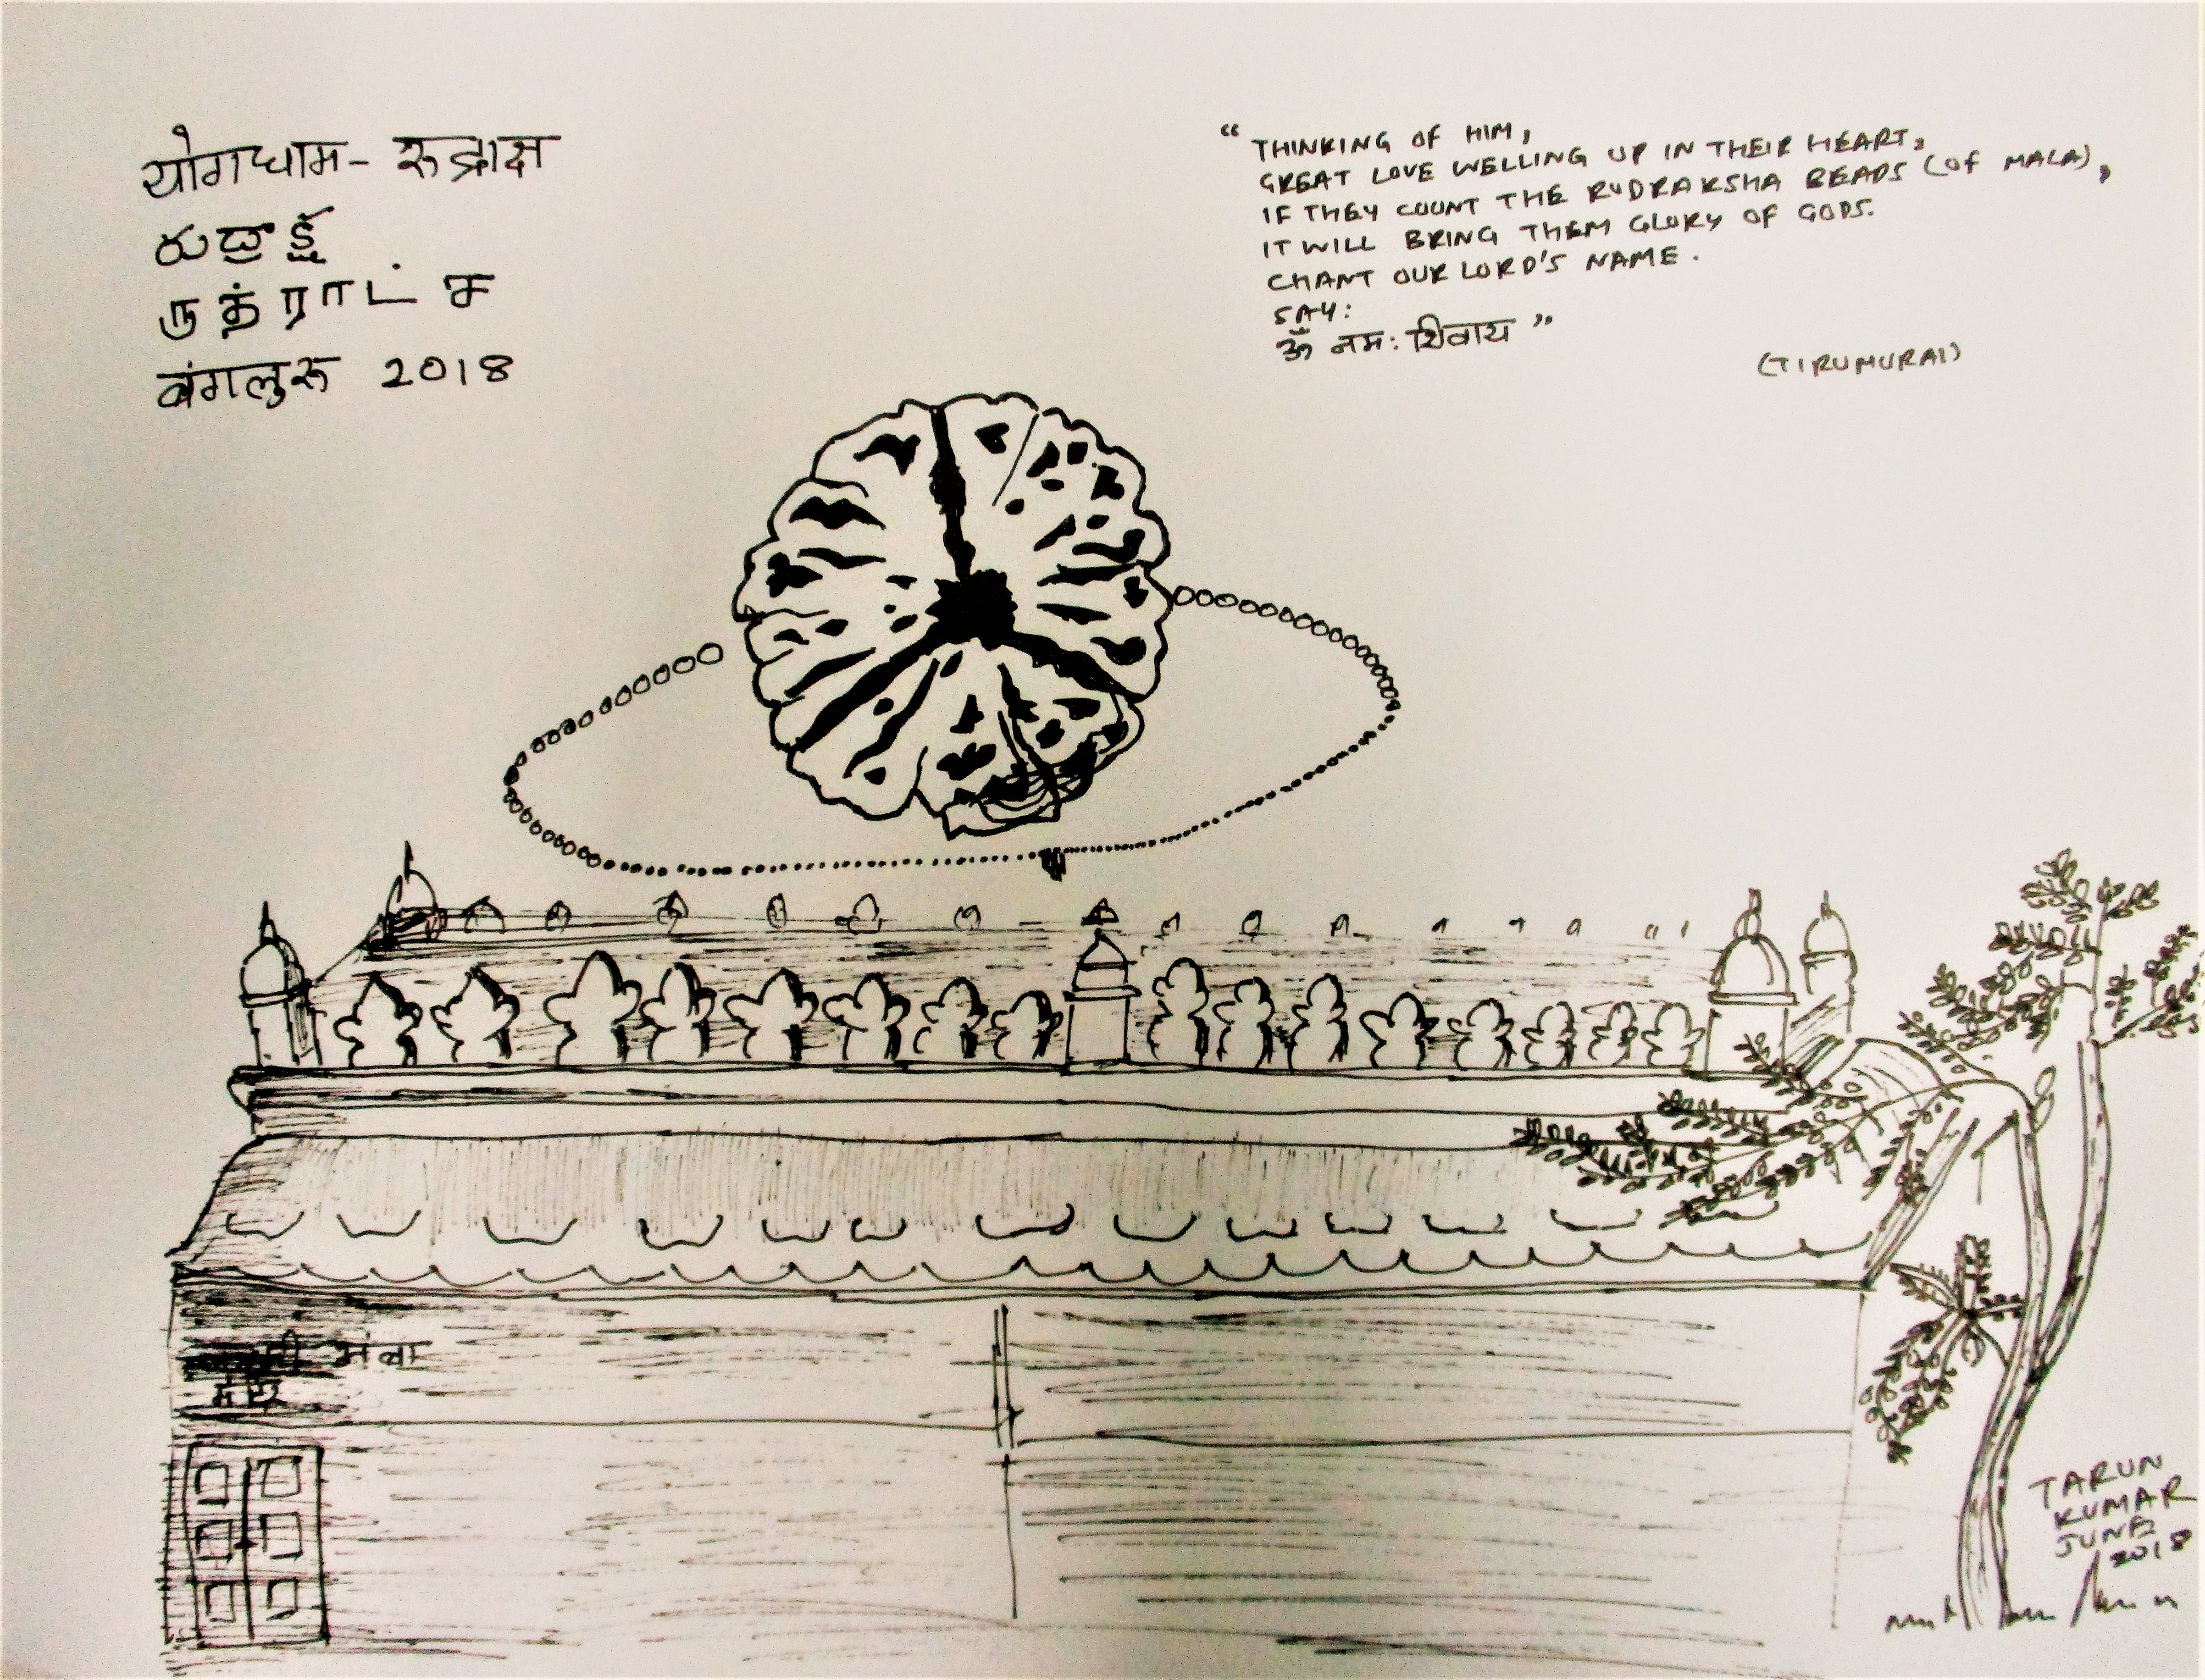 योगधाम - रुद्राक्ष
ರುದ್ರಾಕ್ಷ
ருத்ராட்ச
बंगलुरू 2018
“ THINKING OF HIM,
GREAT LOVE WELLING UP IN THEIR HEART,
IF THEY COUNT THE RUDRAKSHA BEADS (OF MALA),
IT WILL BRING THEM GLORY OF GODS.
CHANT OUR LORD'S NAME.
SAY:
ॐ नमः शिवाय ”
(TIRUMURAI)
अंबा
TARUN
KUMAR
JUNE
2018